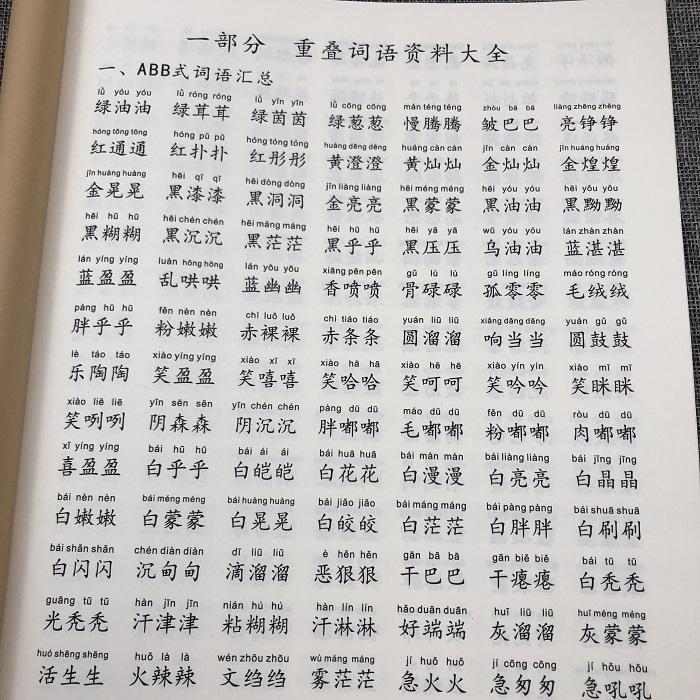 一部分 重叠词语资料大全
一、ABB式词语汇总
lǜ yóu yóu lǜ róng róng lǜ yīn yīn lǜ cōng cōng màn téng téng zhòu bā bā liàng zhēng zhēng
绿油油 绿茸茸 绿茵茵 绿葱葱 慢腾腾 皱巴巴 亮铮铮
hóng tōng tōng hóng pū pū hóng tōng tōng huáng dēng dēng huáng càn càn jīn càn càn jīn huáng huáng
红通通 红扑扑 红彤彤 黄澄澄 黄灿灿 金灿灿 金煌煌
jīn huàng huàng hēi qī qī hēi dòng dòng jīn liàng liàng hēi méng méng hēi yóu yóu hēi yǒu yǒu
金晃晃 黑漆漆 黑洞洞 金亮亮 黑蒙蒙 黑油油 黑黝黝
hēi hū hū hēi chén chén hēi máng máng hēi hū hū hēi yā yā wū yóu yóu lán zhàn zhàn
黑糊糊 黑沉沉 黑茫茫 黑乎乎 黑压压 乌油油 蓝湛湛
lán yíng yíng luàn hōng hōng lán yōu yōu xiāng pēn pēn gū lù lù gū líng líng máo róng róng
蓝盈盈 乱哄哄 蓝幽幽 香喷喷 骨碌碌 孤零零 毛绒绒
pàng hū hū fěn nèn nèn chì luǒ luǒ chì tiáo tiáo yuán liū liū xiǎng dāng dāng yuán gǔ gǔ
胖乎乎 粉嫩嫩 赤裸裸 赤条条 圆溜溜 响当当 圆鼓鼓
lè táo táo xiào yíng yíng xiào xī xī xiào hā hā xiào hē hē xiào yín yín xiào mī mī
乐陶陶 笑盈盈 笑嘻嘻 笑哈哈 笑呵呵 笑吟吟 笑眯眯
xiào liē liē yīn sēn sēn yīn chén chén pàng dū dū máo dū dū fěn dū dū ròu dū dū
笑咧咧 阴森森 阴沉沉 胖嘟嘟 毛嘟嘟 粉嘟嘟 肉嘟嘟
xǐ yíng yíng bái hū hū bái ái ái bái huā huā bái màn màn bái liàng liàng bái jīng jīng
喜盈盈 白乎乎 白皑皑 白花花 白漫漫 白亮亮 白晶晶
bái nèn nèn bái méng méng bái huàng huàng bái jiǎo jiǎo bái máng máng bái pàng pàng bái shuā shuā
白嫩嫩 白蒙蒙 白晃晃 白皎皎 白茫茫 白胖胖 白刷刷
bái shǎn shǎn chén diàn diàn dī liū liū è hěn hěn gān bā bā gān biě biě bái tū tū
白闪闪 沉甸甸 滴溜溜 恶狠狠 干巴巴 干瘪瘪 白秃秃
guāng tū tū hàn jīn jīn nián hú hú hàn lín lín hǎo duān duān huī liū liū huī méng méng
光秃秃 汗津津 粘糊糊 汗淋淋 好端端 灰溜溜 灰蒙蒙
huó shēng shēng huǒ là là wén zhōu zhōu wù máng máng jí huǒ huǒ jí cōng cōng jí hǒu hǒu
活生生 火辣辣 文绉绉 雾茫茫 急火火 急匆匆 急吼吼